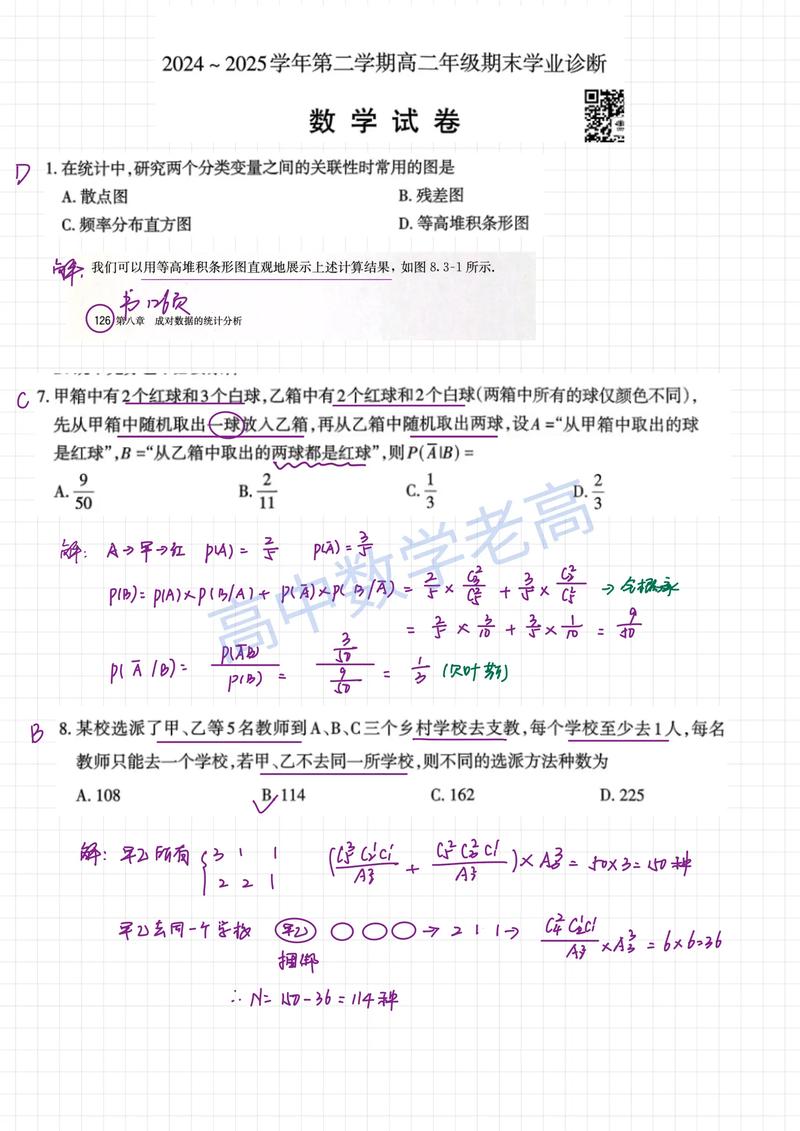 2024～2025学年第二学期高二年级期末学业诊断
数 学 试 卷
D 1. 在统计中,研究两个分类变量之间的关联性时常用的图是
A. 散点图 B. 残差图
C. 频率分布直方图 D. 等高堆积条形图
解: 我们可以用等高堆积条形图直观地展示上述计算结果，如图 8.3-1 所示.
书126页
126 第八章 成对数据的统计分析
C 7. 甲箱中有2个红球和3个白球,乙箱中有2个红球和2个白球(两箱中所有的球仅颜色不同),
先从甲箱中随机取出一球放入乙箱,再从乙箱中随机取出两球,设A=“从甲箱中取出的球
是红球”,B=“从乙箱中取出的两球都是红球”,则P(Ā|B)=
A. 9/50 B. 2/11 C. 1/3 D. 2/3
解: A→甲→红 P(A)= 2/5 P(Ā)= 3/5
P(B)= P(A)×P(B/A)+ P(Ā)×P(B/Ā) = 2/5 × C₃²/C₅² + 3/5 × C₂²/C₅² → 全概率
= 2/5 × 3/10 + 3/5 × 1/10 = 9/50
P(Ā/B)= P(ĀB)/P(B) = (3/50)/(9/50) = 1/3 (贝叶斯)
高中数学老高
B 8. 某校选派了甲、乙等5名教师到A、B、C三个乡村学校去支教,每个学校至少去1人,每名
教师只能去一个学校,若甲、乙不去同一所学校,则不同的选派方法种数为
A. 108 B. 114 C. 162 D. 225
解: 甲乙所有 { 3 1 1 (C₅³C₂¹C₁¹/A₂² + C₅²C₃²C₁¹/A₂²)×A₃³ = 50×3=150种
2 2 1
甲乙去同一个学校 甲乙 ○ ○ ○ → 2 1 1 → C₄²C₂¹C₁¹/A₂² ×A₃³ = 6×6=36
捆绑
∴ N= 150-36=114种